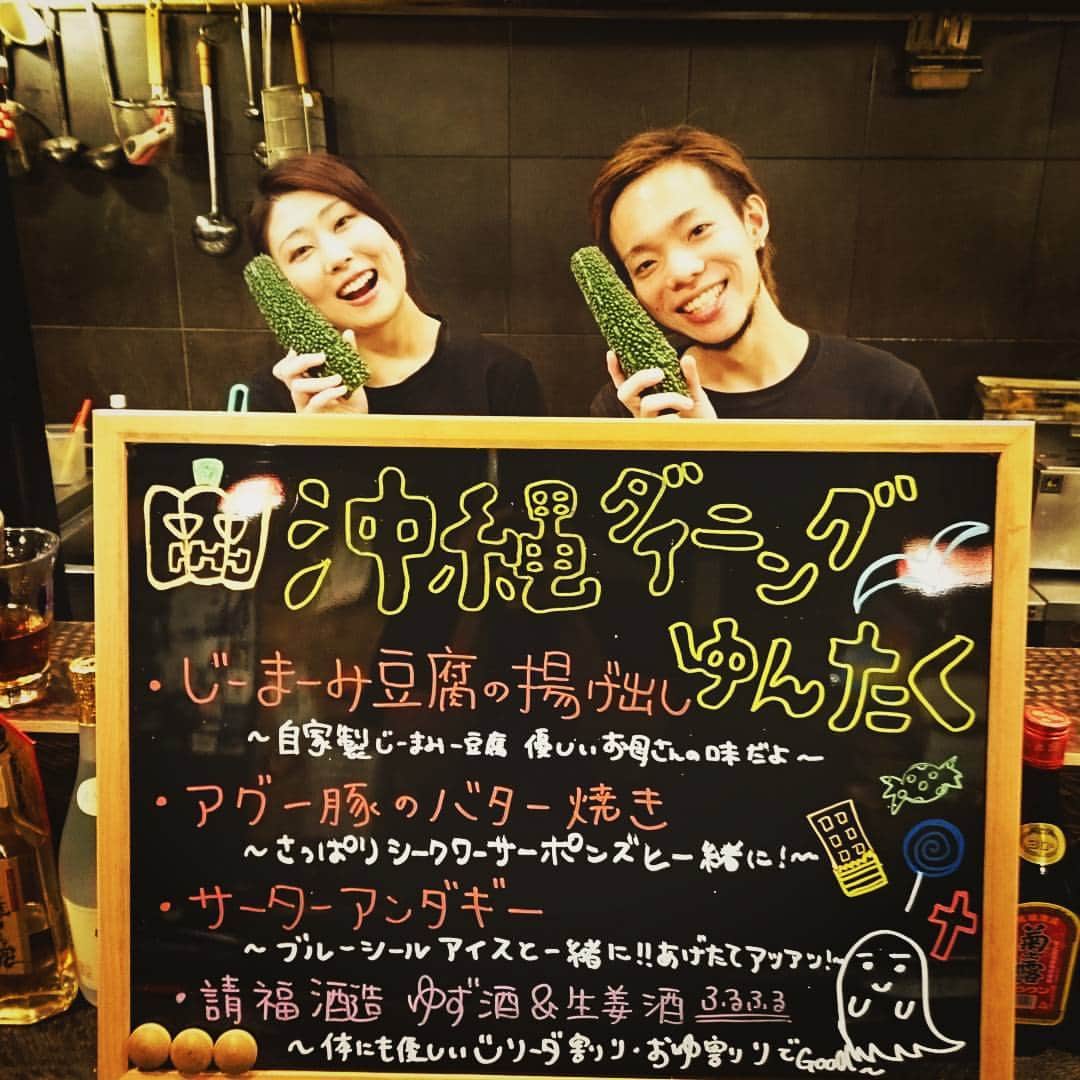 沖縄ダイニング
ゆんたく
・じーまーみ豆腐の揚げ出し
～自家製じーまみー豆腐 優しいお母さんの味だよ～
・アグー豚のバター焼き
～さっぱりシークワーサーポンズと一緒に!～
・サーターアンダギー
～ブルーシールアイスと一緒に!!あげたてアツアツ!～
・請福酒造 ゆず酒&生姜酒 ふるふる
～体にも優しい♡ソーダ割り・お湯割りでGood～
菊之露